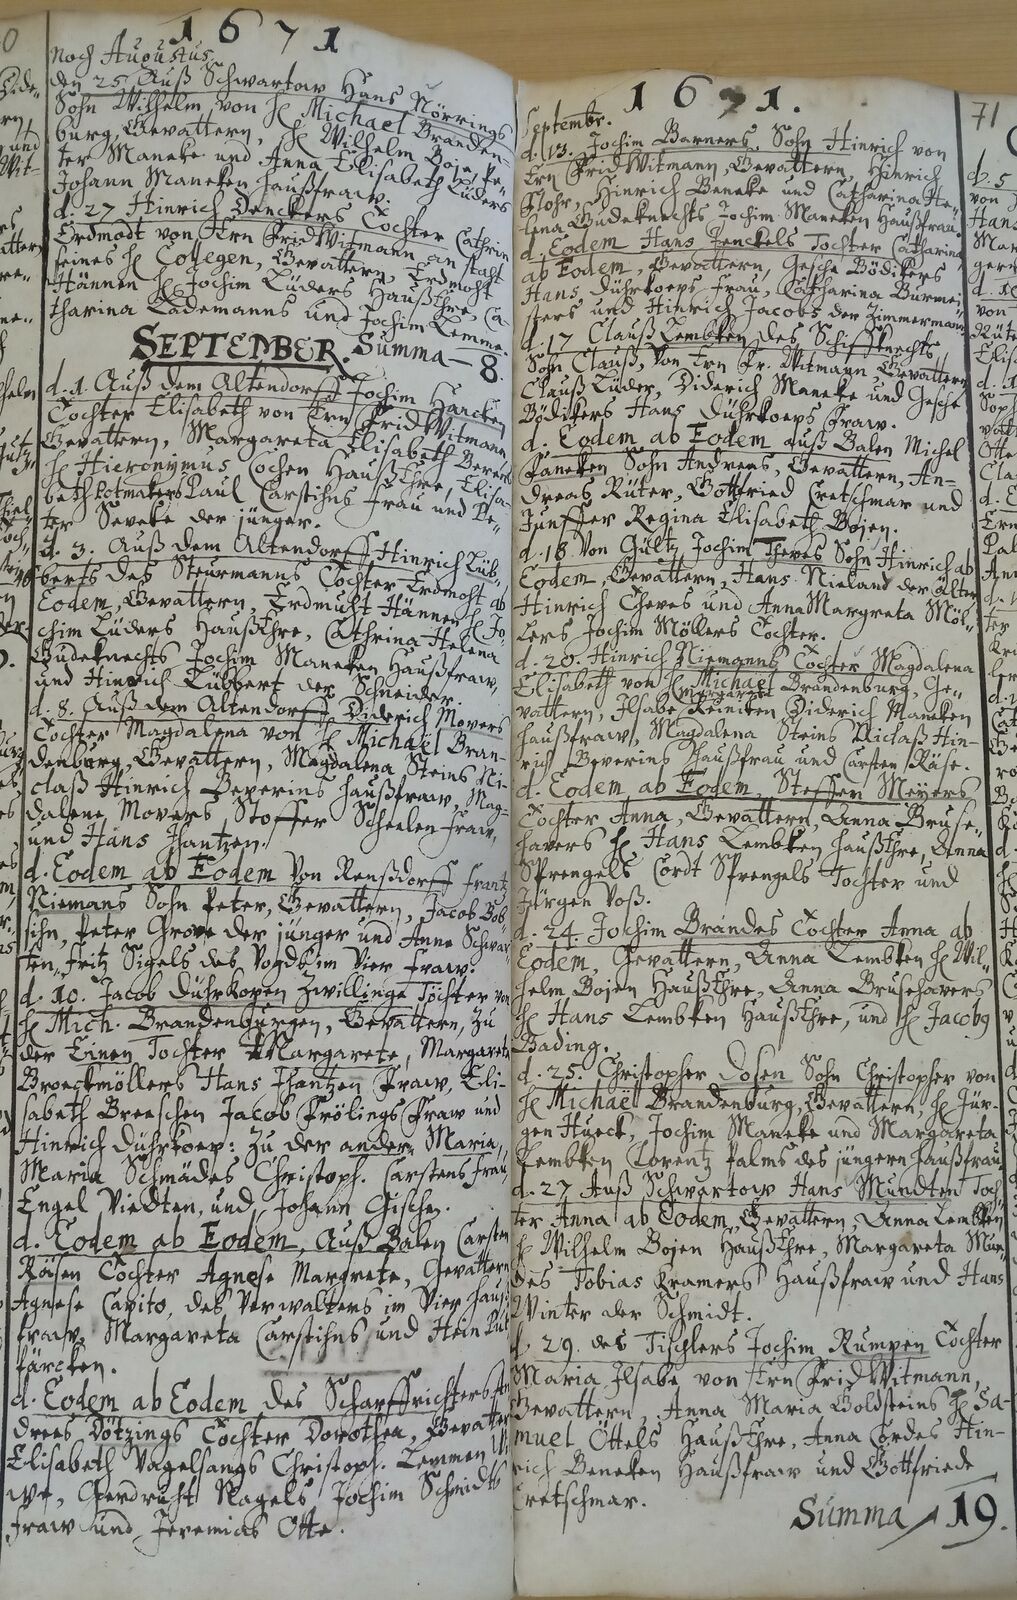 1671
Noch Augustus.
den 25 Auß Schwartow Hans Nörrings
Sohn Wilhelm von H Michael Branden-
burg, Gevattern, H Wilhelm Boje, Pe-
ter Maneke und Anna Elisabeth Lüders
Johann Maneken Haußfraw.
d. 27 Hinrich Denckers Tochter Cathrin
Erdmodt von Ern Frid Witmann an statt
seines H Collegen, Gevattern, Erdmoht
Hännen H Jochim Lüders Haußehre, Ca-
tharina Lademanns und Jochim Lemme.
Summa — 8.
SEPTEMBER.
d. 1. Auß dem Altendorff Jochim Harcken
Tochter Elisabeth von Ern Frid Witmann
Gevattern, Margareta Elisabeth
H Hieronymus Cochen Haußehre, Elisa-
beth Potmakers Paul Carstihns Frau und Pe-
ter Seveke der jünger.
d. 3. Auß dem Altendorff Hinrich Lüb-
berts des Steurmanns Tochter Erdmoht ab
Eodem, Gevattern, Erdmuht Hännen H Jo-
chim Lüders Haußehre, Cathrina Helena
Gudeknechts Jochim Maneken Haußfraw,
und Hinrich Lübbert der Schneider.
d. 8. Auß dem Altendorff Diderich Movers
Tochter Magdalena von H Michaël Bran-
denburg, Gevattern, Magdalena Steins Ni-
claß Hinrich Beverins Haußfraw, Mag-
dalene Movers Stoffer Scheelen Fraw,
und Hans Jhantzen.
d. Eodem ab Eodem Von Renßdorff Frantz
Niemans Sohn Peter, Gevattern, Jacob Bob-
sihn, Peter Grove der jünger und Anne Schwar-
ten, Fritz Sigels des Vogds im Vier Fraw.
d. 10. Jacob Dührkopen Zwillinge Töchter von
H Mich. Brandenburgen, Gevattern, Zu
der Einen Tochter Margarete, Margareta
Broeckmöllers Hans Jhantzen Fraw, Eli-
sabeth Breeschen Jacob Frölings Fraw und
Hinrich Dührkoep: Zu der ander, Maria,
Maria Schmädes Christoph. Carstens Frau,
Engel Viedten, und Johann Gischen.
d. Eodem ab Eodem, Auß Balen Carsten
Räsen Tochter Agnese Margrete, Gevattern
Agnese Capito, des Verwalters im Vier Hauß-
fraw, Margareta Carstihns und Hein
färcken.
d. Eodem ab Eodem des Scharffrichters An-
drees Dötzings Tochter Dorothea, Gevattern
Elisabeth Vagelsangs Christoph. Lemmen
we, Gerdrucht Nagels Jochim Schmidts
Fraw und Jeremias Otte.
1671.
71
Septembr.
d. 13. Jochim Barners Sohn Hinrich von
Ern Frid Witmann, Gevattern, Hinrich
Flohr, Hinrich Beneke und Catharina He-
lena Gudeknechts Jochim Maneken Haußfrau.
d. Eodem Hans Jenckels Tochter Catharina
ab Eodem, Gevattern, Gesche Bödikers
Hans Dührkoeps Frau, Catharina Burmei-
sters und Hinrich Jacobs der Zimmermann.
d. 17 Clauß Lembken des Schiffknechts
Sohn Clauß, Von Ern Fr. Witmann Gevattern
Clauß Lüder, Diderich Maneke und Gesche
Bödikers Hans Dührkoeps Fraw.
d. Eodem ab Eodem auß Balen Michel
Faneken Sohn Andreas, Gevattern, An-
dreas Rüter, Gottfried Cretschmar und
Junffer Regina Elisabeth Bojen.
d. 18. Von Gültz Jochim Theves Sohn Hinrich ab
Eodem, Gevattern, Hans Nieland der älter
Hinrich Theves und Anna Margreta Möl-
lers Jochim Möllers Tochter.
d. 20. Hinrich Niemanns Tochter Magdalena
Elisabeth von H Michael Brandenburg, Ge-
vattern, Ilsabe Margarete Reiniken Diderich Maneken
Haußfraw, Magdalena Steins Niclaß Hin-
rich Beverins Haußfrau und Carsten Räse.
d. Eodem ab Eodem, Steffen Meyers
Tochter Anna, Gevattern, Anna Bruse-
havers H Hans Lembken Haußehre, Anna
Sprengels Cordt Sprengels Tochter und
Jürgen Voß.
d. 24. Jochim Brandes Tochter Anna ab
Eodem, Gevattern, Anna Lembken H Wil-
helm Bojen Haußehre, Anna Brusehavers
H Hans Lembken Haußehre, und H Jacobg
Bading.
d. 25. Christopher Dosen Sohn Christopher von
H Michaël Brandenburg, Gevattern, H Jür-
gen Hueck, Jochim Maneke und Margareta
Lembken Lorentz Palms des jüngern Haußfrau
d. 27 Auß Schwartow Hans Mundten Toch-
ter Anna ab Eodem, Gevattern, Anna Lembken
H Wilhelm Bojen Haußehre, Margareta Mun-
des Tobias Kramers Haußfraw und Hans
Winter der Schmidt.
d. 29. des Tischlers Jochim Rumpen Tochter
Maria Ilsabe von Ern Frid Witmann,
Gevattern, Anna Maria Goldsteins H Sa-
muel Öttels Haußehre, Anna Cordes Hin-
rich Beneken Haußfraw und Gottfriede
Cretschmar.
Summa / 19.